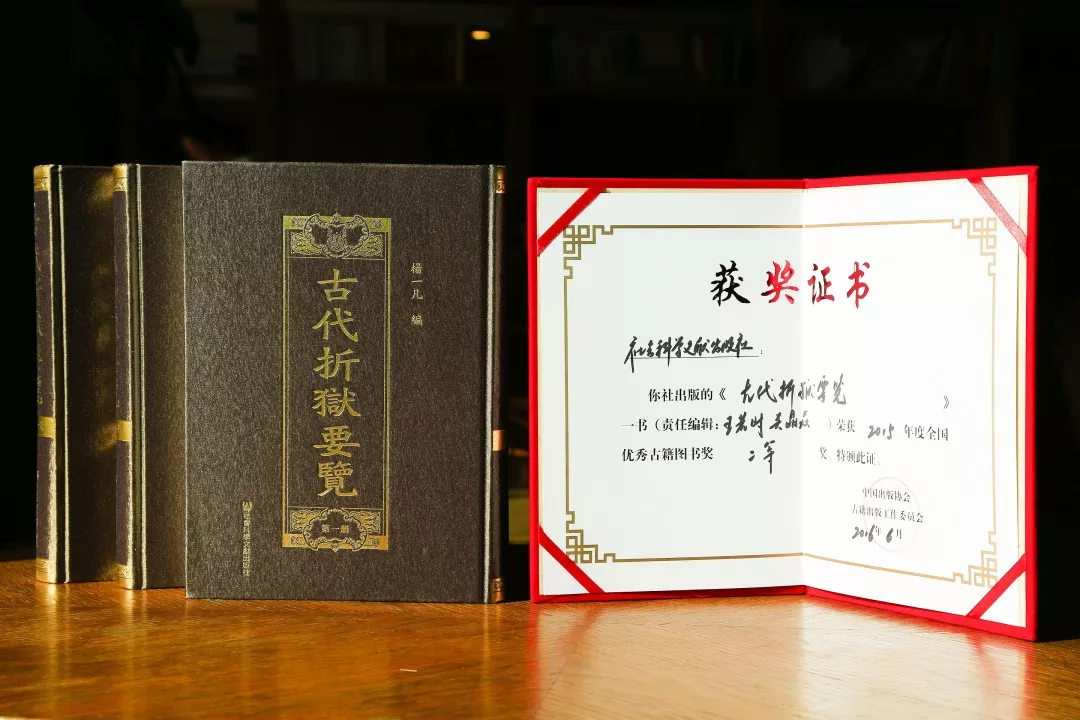 古代折獄要覽
楊一凡 編
第一册
社會科學文獻出版社
获奖证书
社会科学文献出版社：
你社出版的《 古代折狱要览 》
一书（责任编辑：）荣获 2015 年度全国
优秀古籍图书奖 二等 奖。特颁此证。
中国出版协会
古籍出版工作委员会
2016年6月